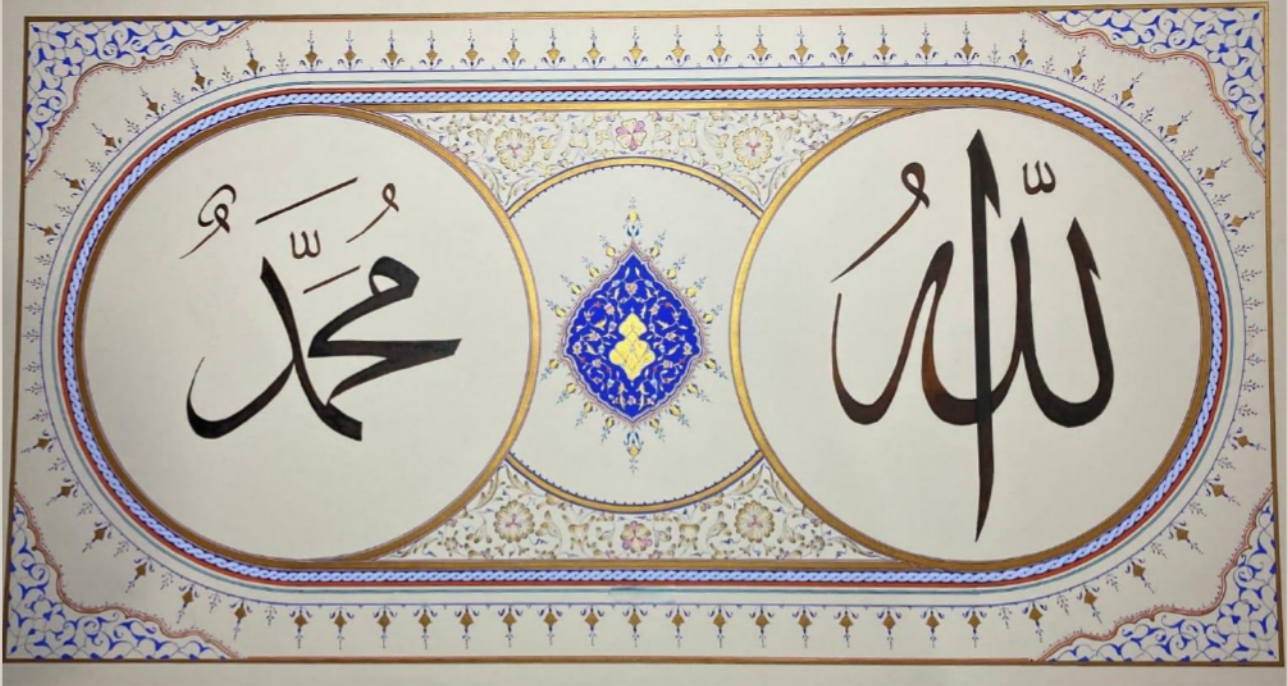 اللّهُ
مُحَمَّدٌ